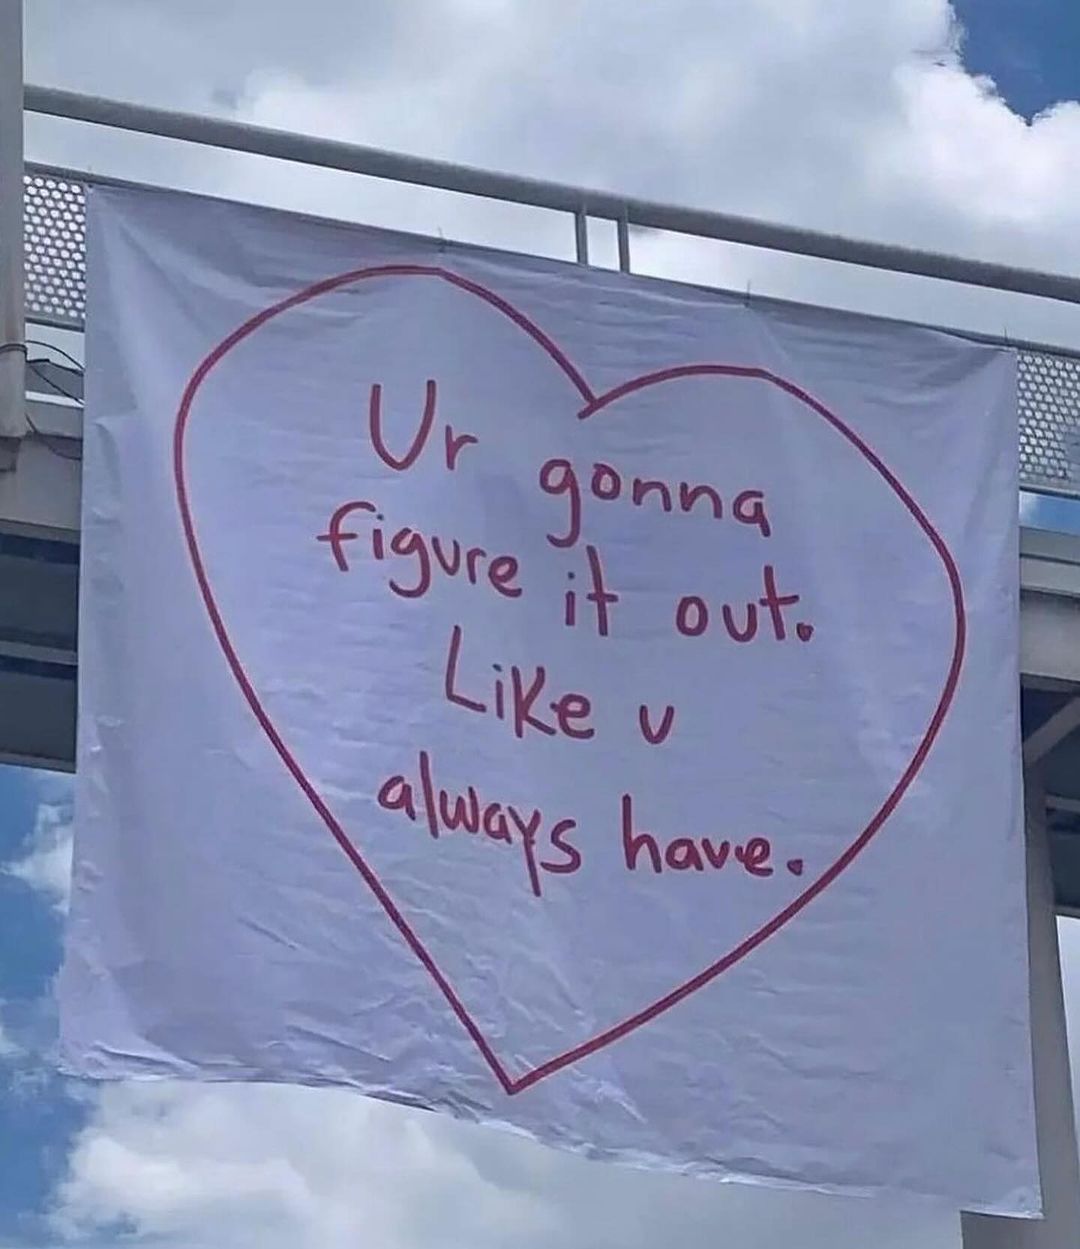 Ur gonna
figure it out.
Like u
always have.